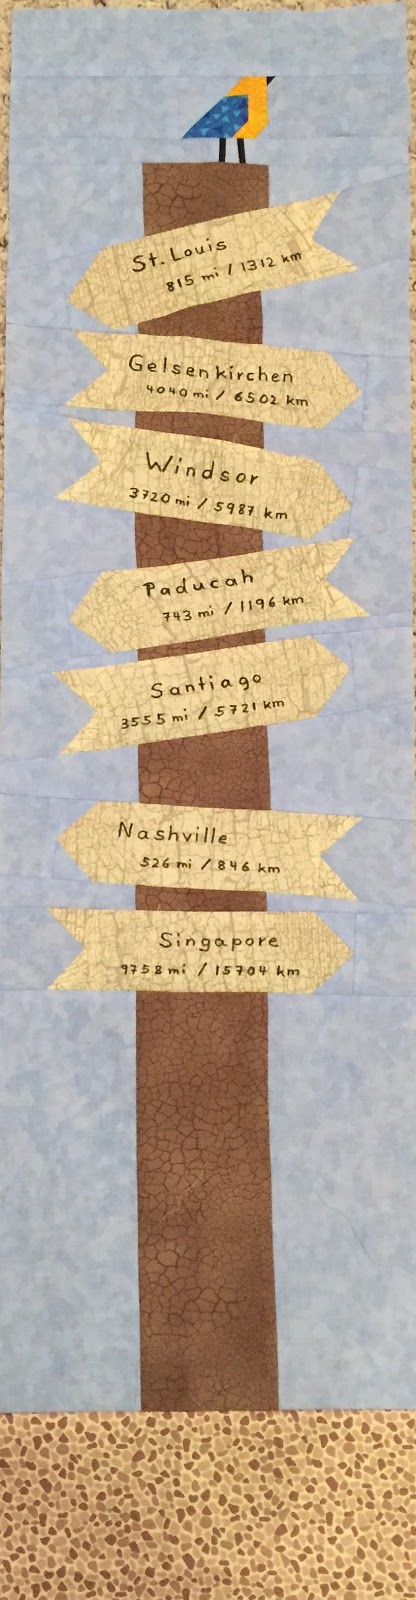 St. Louis
815 mi / 1312 km
Gelsenkirchen
4040 mi / 6502 km
Windsor
3720 mi / 5987 km
Paducah
743 mi / 1196 km
Santiago
3555 mi / 5721 km
Nashville
526 mi / 846 km
Singapore
9758 mi / 15704 km